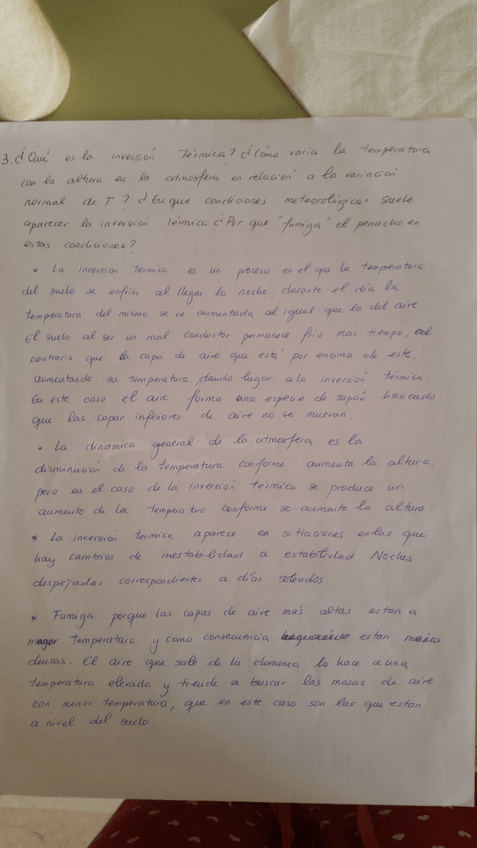 3. ¿Qué es la inversión térmica? ¿Cómo varía la temperatura
con la altura en la atmósfera en relación a la variación
normal de T? ¿En que condiciones meteorológicas suele
aparecer la inversión térmica ¿Por que "fumiga" el penacho en
estas condiciones?
* La inversión termica es un proceso en el que la temperatura
del suelo se enfria al llegar la noche, durante el día la
temperatura del mismo se ve aumentada al igual que la del aire
El suelo al ser un mal conductor permanece frio mas tiempo, al
contrario que la capa de aire que está por encima de este,
aumentando su temperatura, dando lugar a la inversión térmica.
En este caso el aire forma una especie de tapón haciendo
que las capas inferiores de aire no se muevan.
* La dinamica general de la atmosfera es la
disminución de la temperatura conforme aumenta la altura,
pero en el caso de la inversión térmica se produce un
aumento de la temperatura conforme se aumenta la altura
* La inversión termica aparece en sitiaciones en las que
hay cambios de inestabilidad a estabilidad. Noches
despejadas correspondientes a días soleados.
* Fumiga porque las capas de aire más altas estan a
mayor temperatura y como consecuencia estan menos
densas. El aire que sale de la chimenea lo hace a una
temperatura elevada y tiende a buscar las masas de aire
con menor temperatura, que en este caso son las que estan
a nivel del suelo.